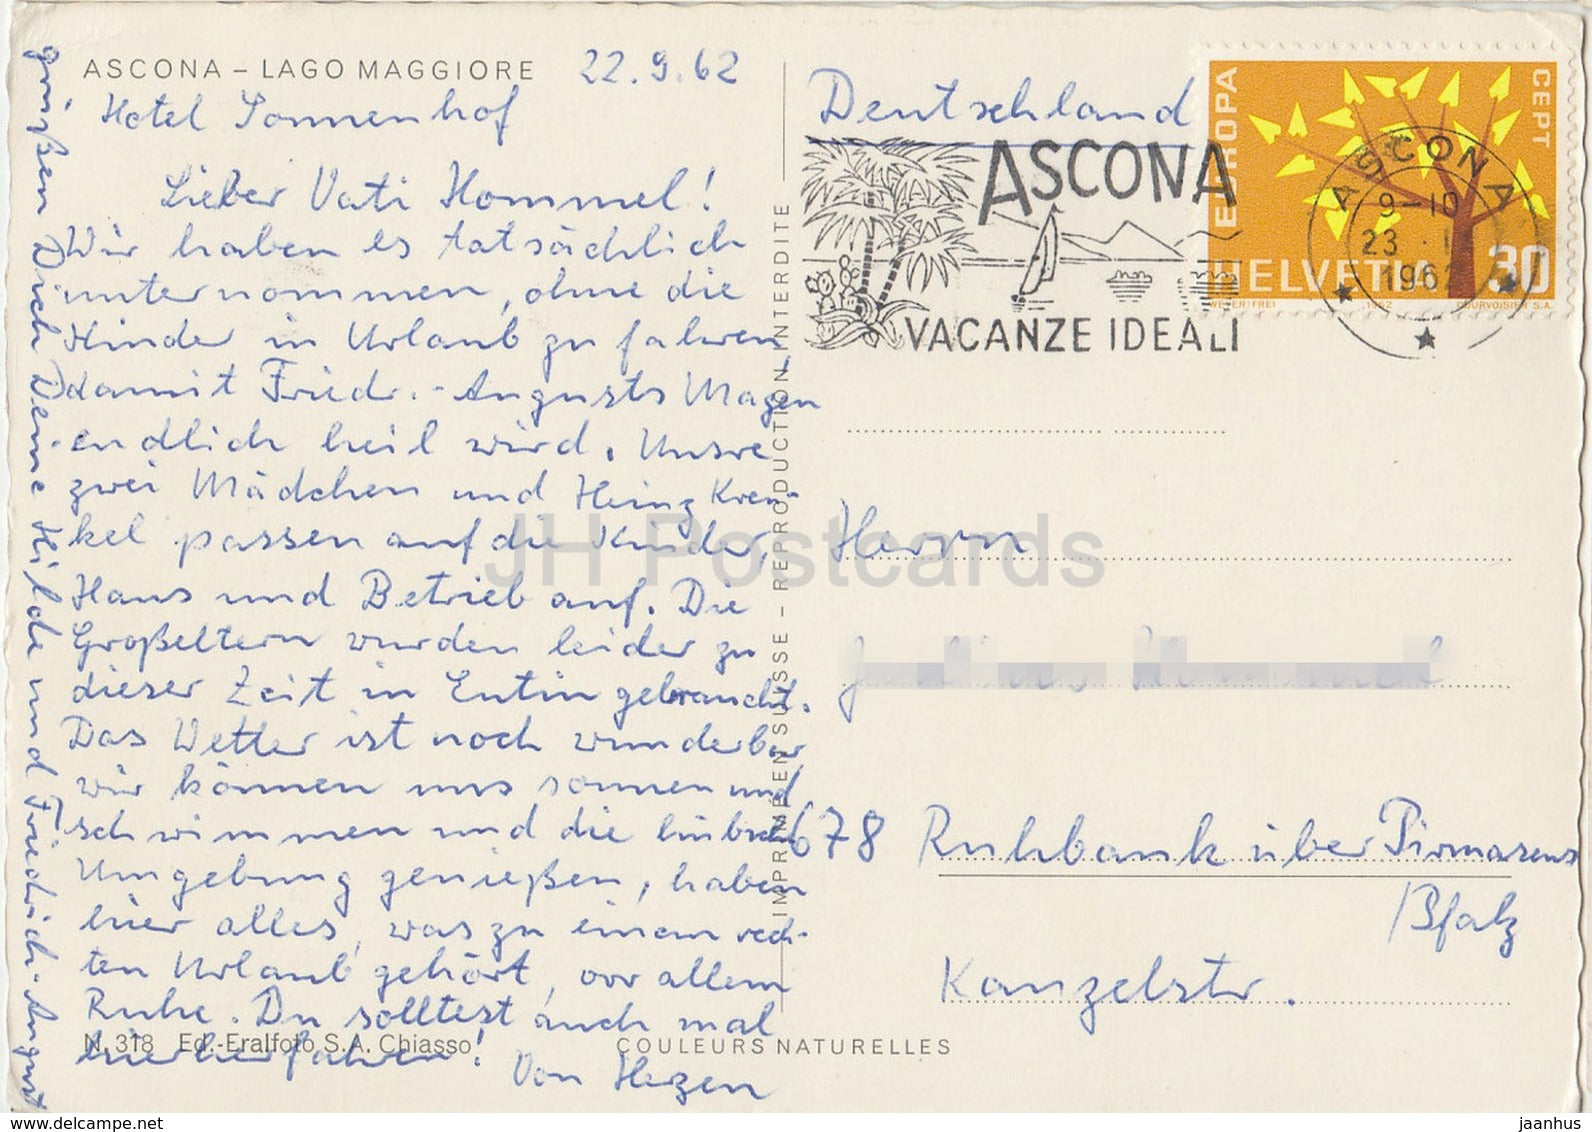 ASCONA – LAGO MAGGIORE
22.9.62
Hotel Sonnenhof
Lieber Vati Hommel!
Wir haben es tatsächlich
unternommen, ohne die
Kinder in Urlaub zu fahren,
damit Friedr.-Augusts Magen
endlich heil wird. Unsre
zwei Mädchen und Heinz Kren-
kel passen auf die Kinder,
Haus und Betrieb auf. Die
Großeltern wurden leider zu
dieser Zeit in Eutin gebraucht.
Das Wetter ist noch wunderbar,
wir können uns sonnen und
schwimmen und die hübsche
Umgebung genießen, haben
hier alles, was zu einem rech-
ten Urlaub gehört, vor allem
Ruhe. Du solltest auch mal
hierher fahren!
Von Herzen
grüßen Dich Deine Hilde und Friedrich-August
N. 318 Ed.-Eralfoto S.A. Chiasso
COULEURS NATURELLES
IMPRIMÉ EN SUISSE – REPRODUCTION INTERDITE
Deutschland
ASCONA
VACANZE IDEALI
EUROPA
CEPT
HELVETIA 30
1962
COURVOISIER S.A.
ASCONA
9-10
23
1962
Herrn
678 Ruhbank über Pirmasens
/Pfalz
Kanzelstr.
JH Postcards
www.delcampe.net
jaanhus